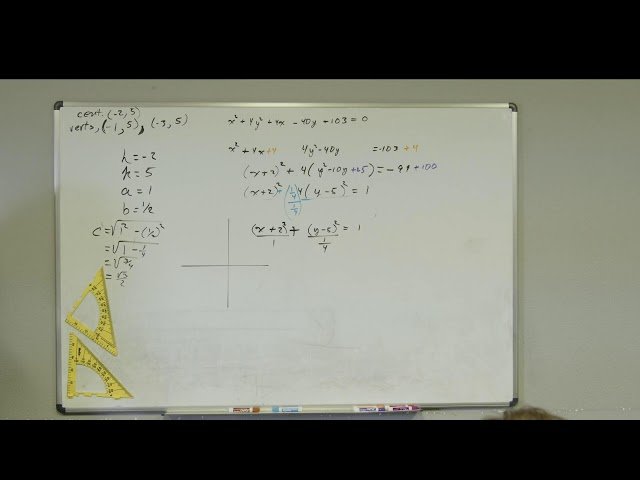 cent. (-2, 5)
verts, (-1, 5), (-3, 5)
h = -2
k = 5
a = 1
b = 1/2
c = √(1² - (1/2)²)
= √(1 - 1/4)
= √(3/4)
= √3/2
x² + 4y² + 4x - 40y + 103 = 0
x² + 4x + 4 4y² - 40y = -103 + 4
(x + 2)² + 4(y² - 10y + 25) = -99 + 100
(x + 2)² + (1/4)/(1/4) 4(y - 5)² = 1
(x + 2)²/1 + (y - 5)²/(1/4) = 1